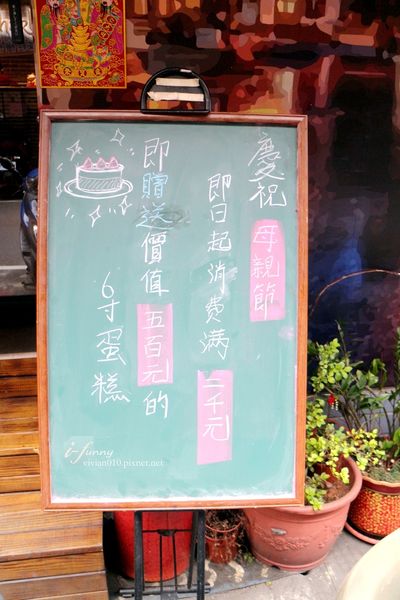 慶祝 母親節
即日起消費滿 二千元
即贈送價值 五百元的
6寸蛋糕
i-funny
vivian010.pixnet.net